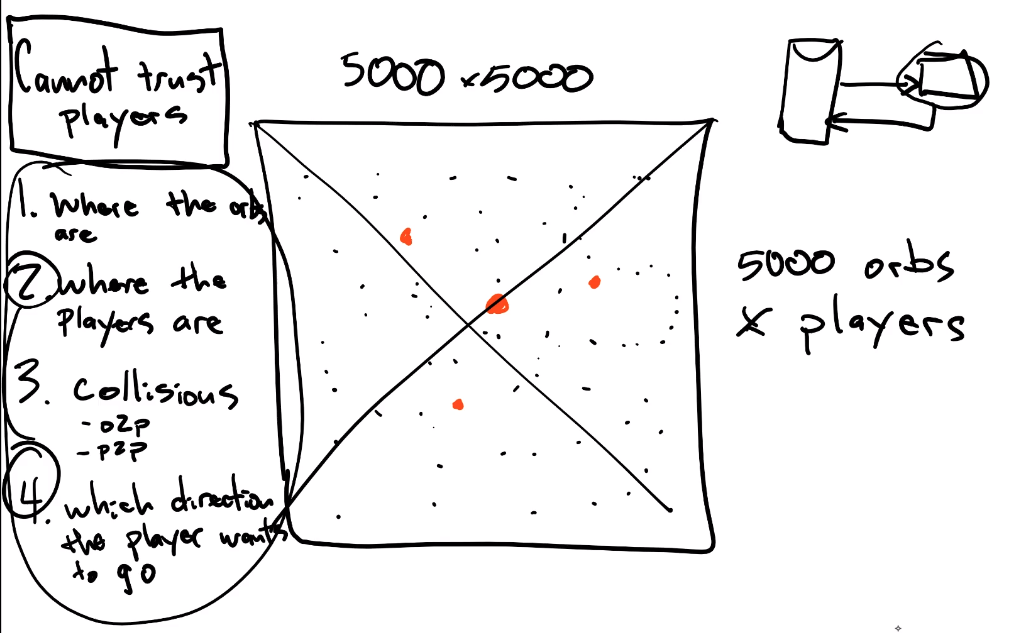 Cannot trust
players
5000 x 5000
1. Where the orbs
are
2. Where the
Players are
3. Collisions
- o2p
- p2p
4. which direction
the player wants
to go
5000 orbs
x players